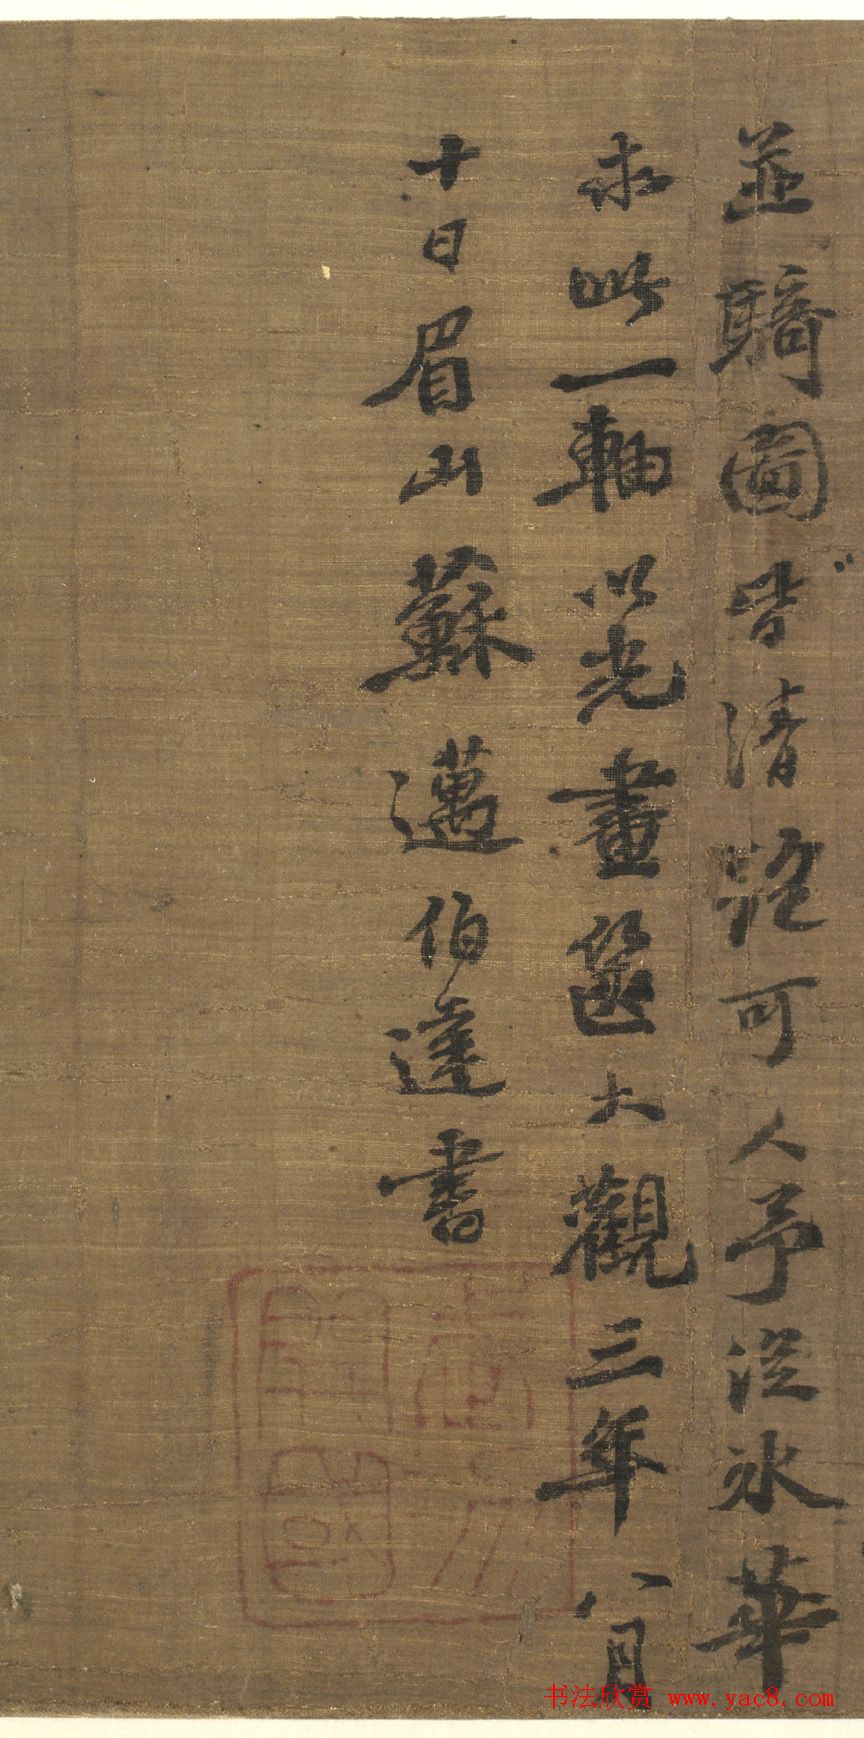 並騎圖皆清強可人予從冰華
求此一軸以光畫篋大觀三年八月
十日眉山蘇邁伯達書
书法欣赏 www.yac8.com